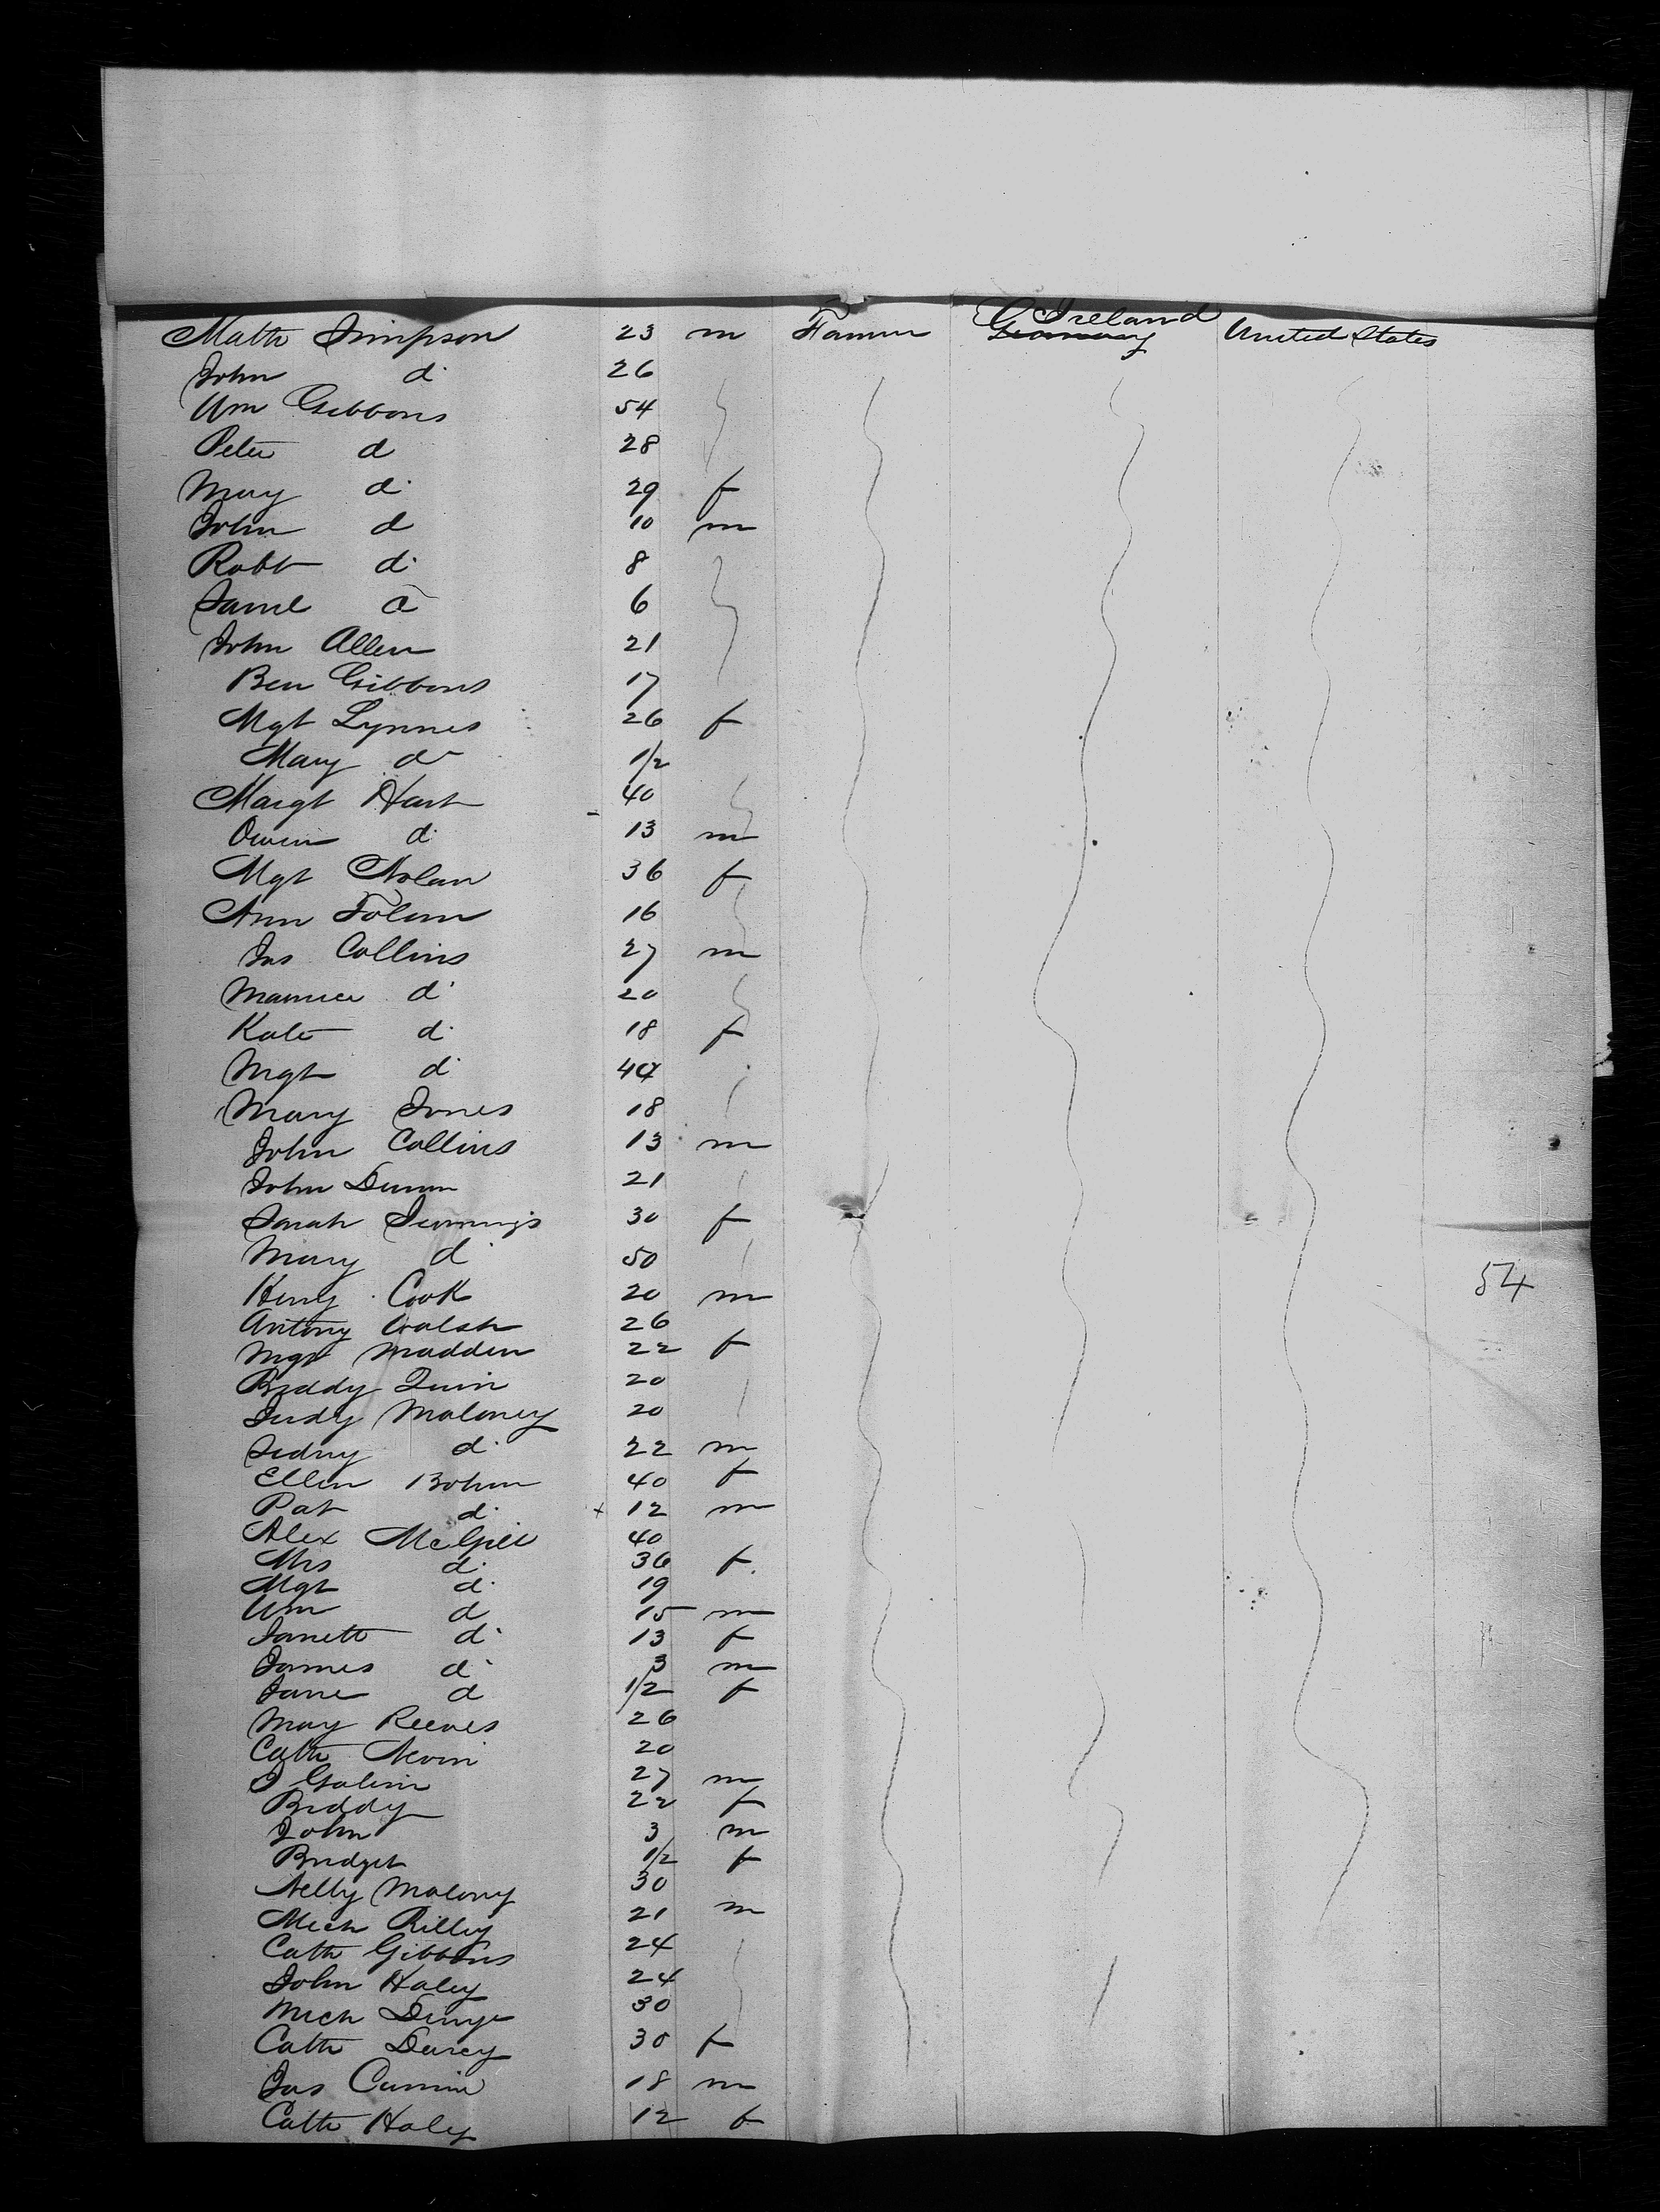 Matth Simpson 23 m Farmer Germany Ireland United States
John do 26
Wm Gibbons 54
Peter d 28
Mary d. 29 f
John d 10 m
Robt d. 8
Saml d 6
John Allen 21
Ben Gibbons 17
Mgt Lynnes 26 f
Mary do 1/2
Margt Hart 40
Owen d. 13 m
Mgt Nolan 36 f
Ann 16
Jas Collins 27 m
Maurice d. 20
Kate d. 18 f
Mgt d. 40
Mary Jones 18
John Collins 13 m
John Dunn 21
Sarah Jennings 30 f
Mary d. 50
Henry Cook 20 m 54
Antony Walsh 26
Mgt Madden 22 f
Biddy Quin 20
Judy Maloney 20
Sidny d. 22 m
Ellen 40 f
Pat d. x 12 m
Alex McGill 40
Mrs d. 36 f.
Mgt d. 19
Wm d 15 m
Janett d. 13 f
James d. 3 m
Jane d 1/2 f
May Reeves 26
Cath Nevin 20
J 27 m
Biddy 22 f
John 3 m
Bridget 1/2 f
Nelly Malony 30
Mich Rilley 21 m
Cath Gibbons 24
John Haley 24
Mich 30
Cath Darcy 30 f
Jas 18 m
Cath Haley 12 f